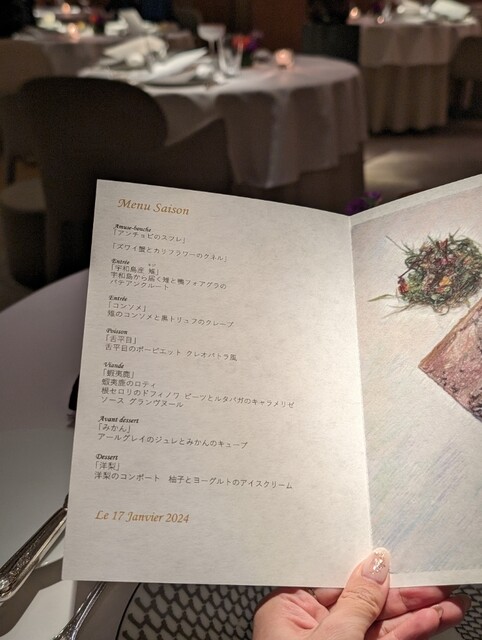 Menu Saison
Amuse-bouche
「アンチョビのスフレ」
「ズワイ蟹とカリフラワーのクネル」
Entrée
「宇和島産 雉」
宇和島から届く雉と鴨フォアグラの
パテアンクルート
Entrée
「コンソメ」
雉のコンソメと黒トリュフのクレープ
Poisson
「舌平目」
舌平目のポーピエット クレオパトラ風
Viande
「蝦夷鹿」
蝦夷鹿のロティ
根セロリのドフィノワ ビーツとルタバガのキャラメリゼ
ソース グランヴヌール
Avant dessert
「みかん」
アールグレイのジュレとみかんのキューブ
Dessert
「洋梨」
洋梨のコンポート 柚子とヨーグルトのアイスクリーム
Le 17 Janvier 2024